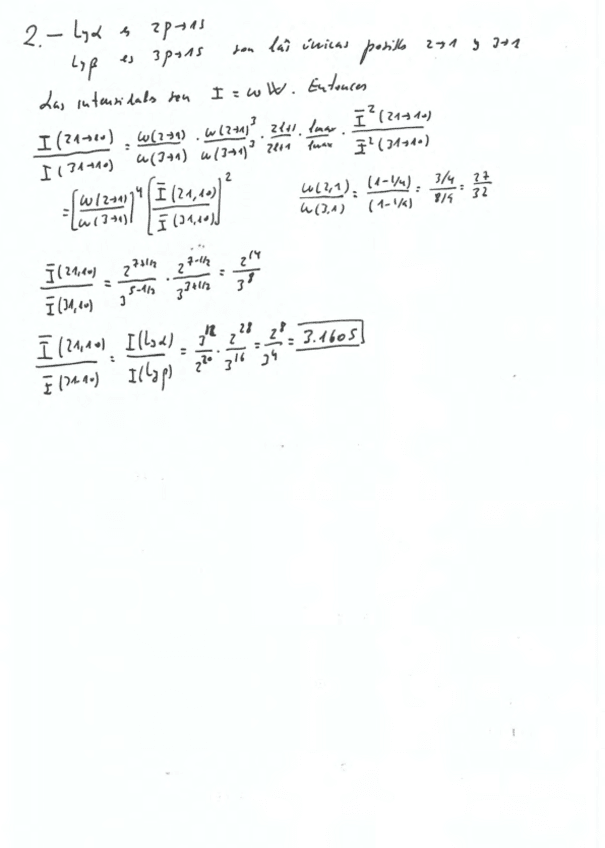 2.- Lyα es 2p→1s
Lyβ es 3p→1s son las únicas posibles 2→1 y 3→1
Las intensidades son I = ωW. Entonces
I(21→10)/I(31→10) = ω(2→1)/ω(3→1) · ω(2→1)³/ω(3→1)³ · 2l+1/2l+1 · lmax/lmax · Ī²(21→10)/Ī²(31→10)
= [ω(2→1)/ω(3→1)]⁴ [Ī(21,10)/Ī(31,10)]² ω(2,1)/ω(3,1) = (1-1/4)/(1-1/9) = 3/4/8/9 = 27/32
Ī(21,10)/Ī(31,10) = 2^(7+1/2)/3^(5-1/2) · 2^(7-1/2)/3^(3+1/2) = 2^14/3^8
Ī(21,10)/Ī(31,10) = I(Lyα)/I(Lyβ) = 3^12/2^20 · 2^28/3^16 = 2^8/3^4 = 3.1605